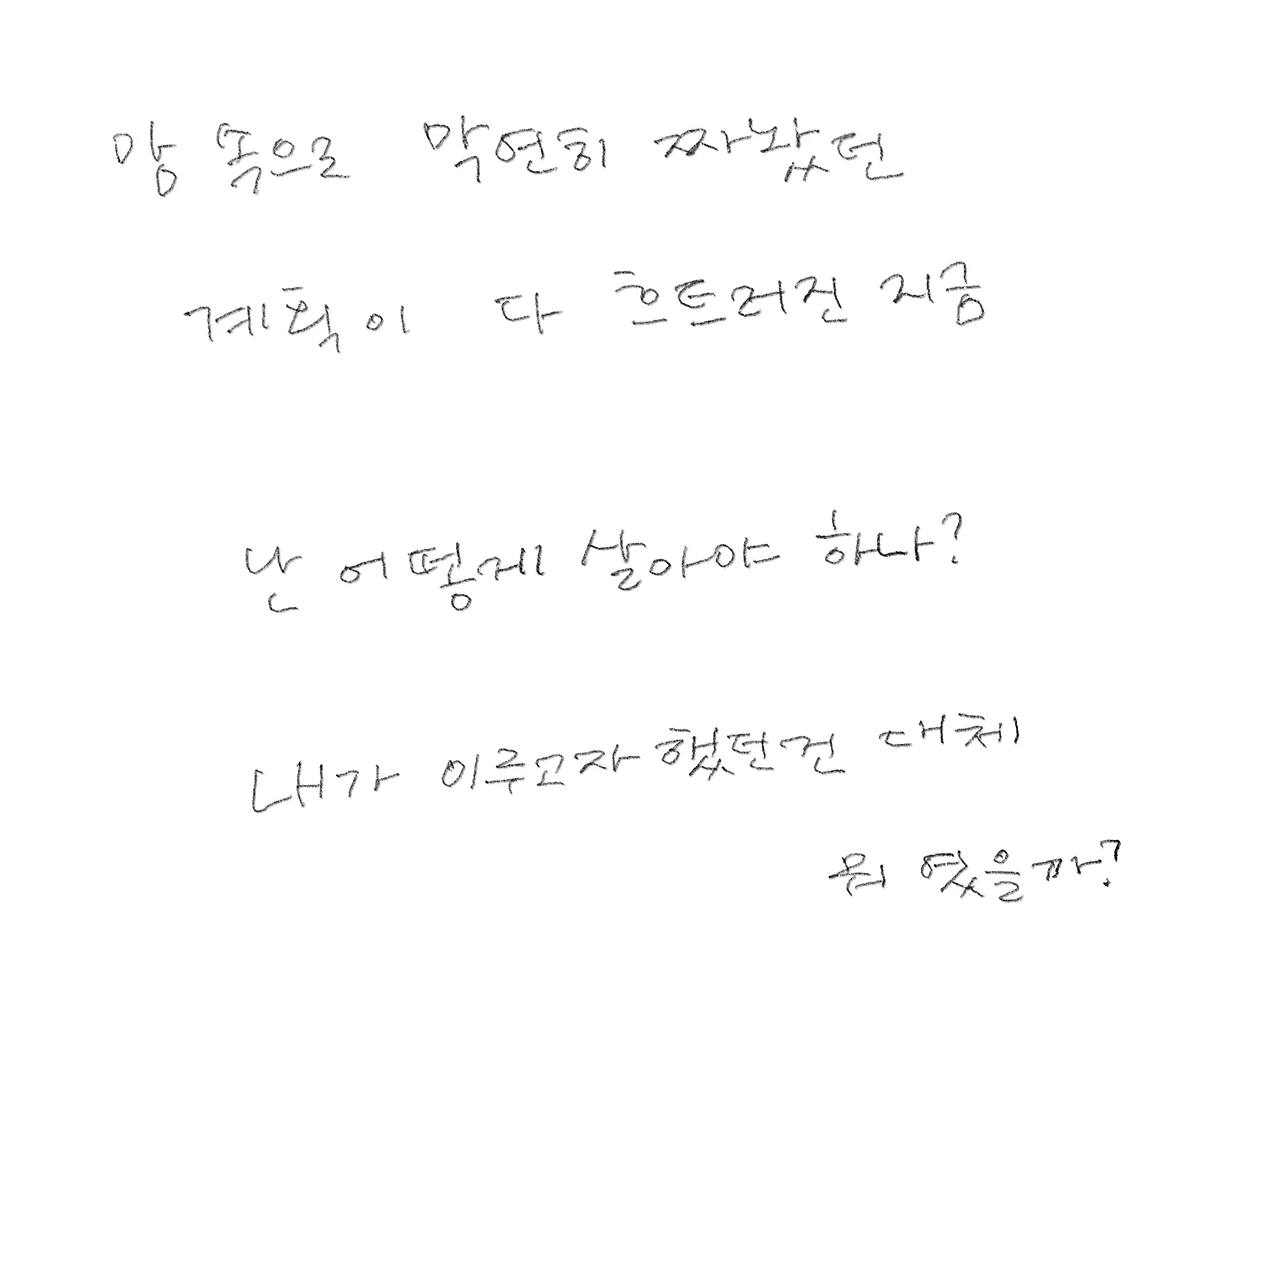 맘 쪽으로 막연히 짜놨던
계획이 다 흐트러진 지금
난 어떻게 살아야 하나?
내가 이루고자 했던건 대체
뭐 였을까?